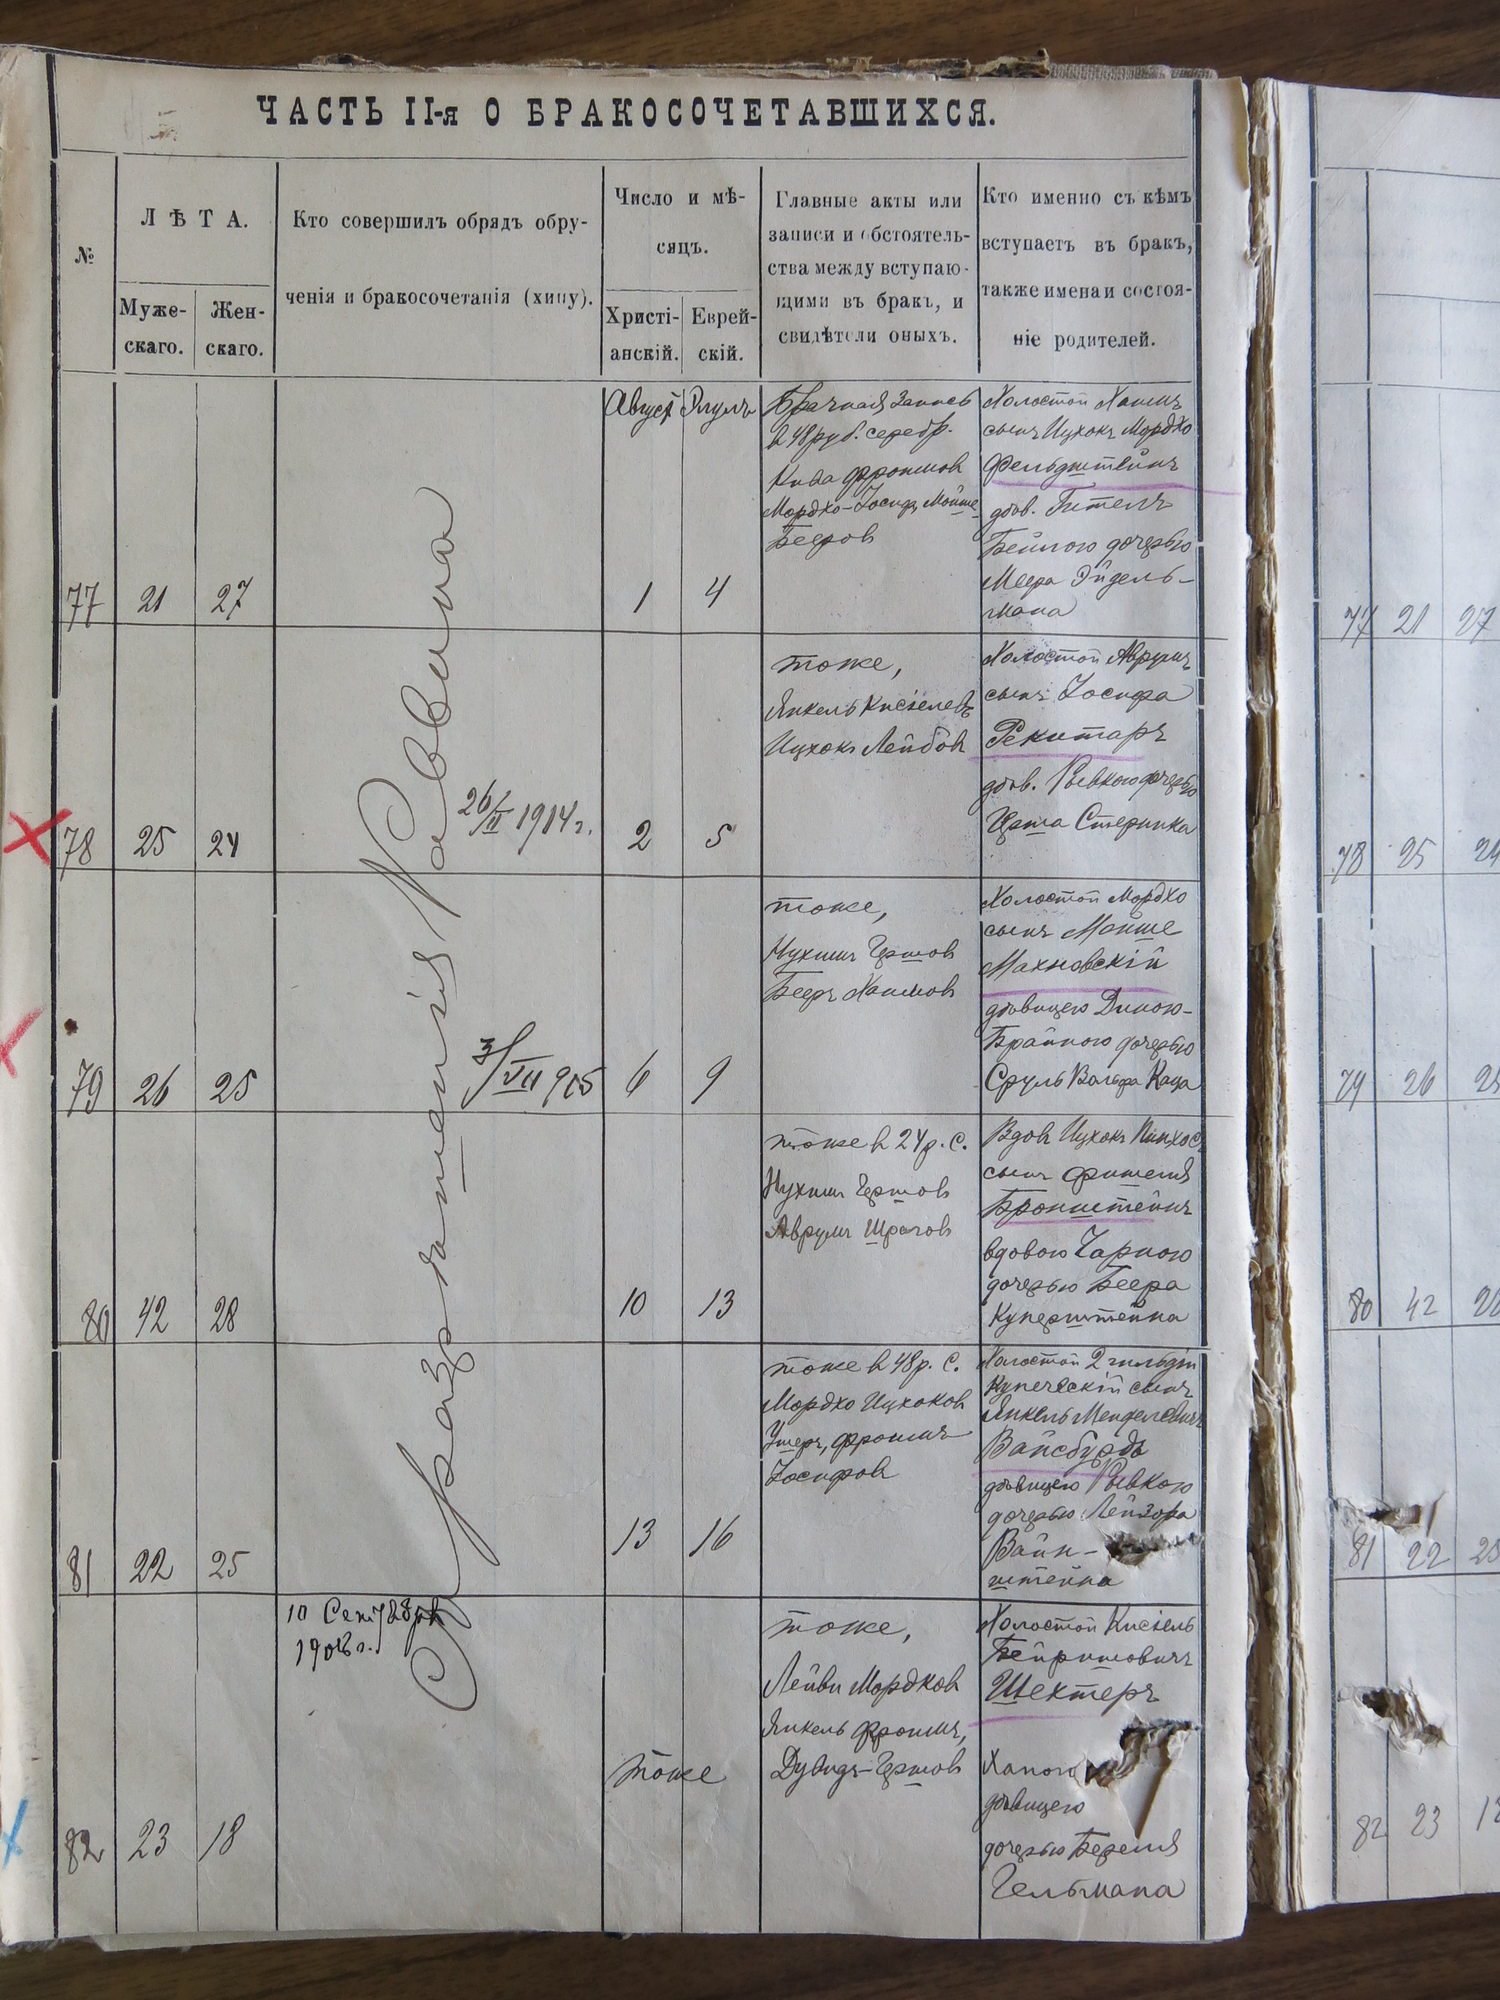 ЧАСТЬ II-я О БРАКОСОЧЕТАВШИХСЯ.
№
ЛѢТА.
Муже-
скаго.
Жен-
скаго.
Кто совершилъ обрядъ обру-
ченія и бракосочетанія (хипу).
Число и мѣ-
сяцъ.
Христі-
анскій.
Еврей-
скій.
Главные акты или
записи и обстоятель-
ства между вступаю-
щими въ бракъ, и
свидѣтели оныхъ.
Кто именно съ кѣмъ
вступаетъ въ бракъ,
также имена и состоя-
ніе родителей.
Съ разрѣшенія Раввина
77
21
27
Август
Элулъ
1
4
Брачная запись
в 48 руб. серебр.
Кива Фроимов
Мордхо-Іосифъ Мойше-
Бееров
Холостой Хаимъ
сынъ Ицхокъ Мордхо
Фельдштейнъ
дѣв. Гителъ
Бейлою дочерью
Меера Эйдель-
мана
78
25
24
26/II 1914 г.
2
5
тоже,
Янкель Кисіелевъ
Ицхокъ Лейбовъ
Холостой Аврумъ
сынъ Іосифа
Рекитаръ
дѣв. Рывкою дочерью
Герша Стерника
79
26
25
3/VII 915
6
9
тоже,
Нухимъ Гершовъ
Бееръ Хаимовъ
Холостой Мордхо
сынъ Мойше
Махновскій
дѣвицею Диною-
Брайною дочерью
Сруль Вольфа Каца
80
42
28
10
13
тоже в 24 р. С.
Нухимъ Гершовъ
Аврумъ Шраговъ
Вдовъ Ицхокъ Пинхос
сынъ Фишеля
Бронштейнъ
вдовою Чарною
дочерью Беера
Куперштейна
81
22
25
13
16
тоже в 48 р. С.
Мордхо Ицхоковъ
Ушеръ, Фроимъ
Іосифовъ
Холостой 2 гильдіи
Купеческій сынъ
Янкель Менделевичъ
Вайсбурдъ
дѣвицею Рывкою
дочерью Лейзора
Вайн-
штейна
82
23
18
10 Сентября
1906 г.
тоже
тоже,
Лейви Мордковъ
Янкель Фроимъ,
Дувидъ-Гершовъ
Холостой Кисіель
Бейришовичъ
Шехтеръ
Ханою
дѣвицею
дочерью Береля
Гельмана
77 21 27
78 25 24
79 26 25
80 42 28
81 22 25
82 23 18